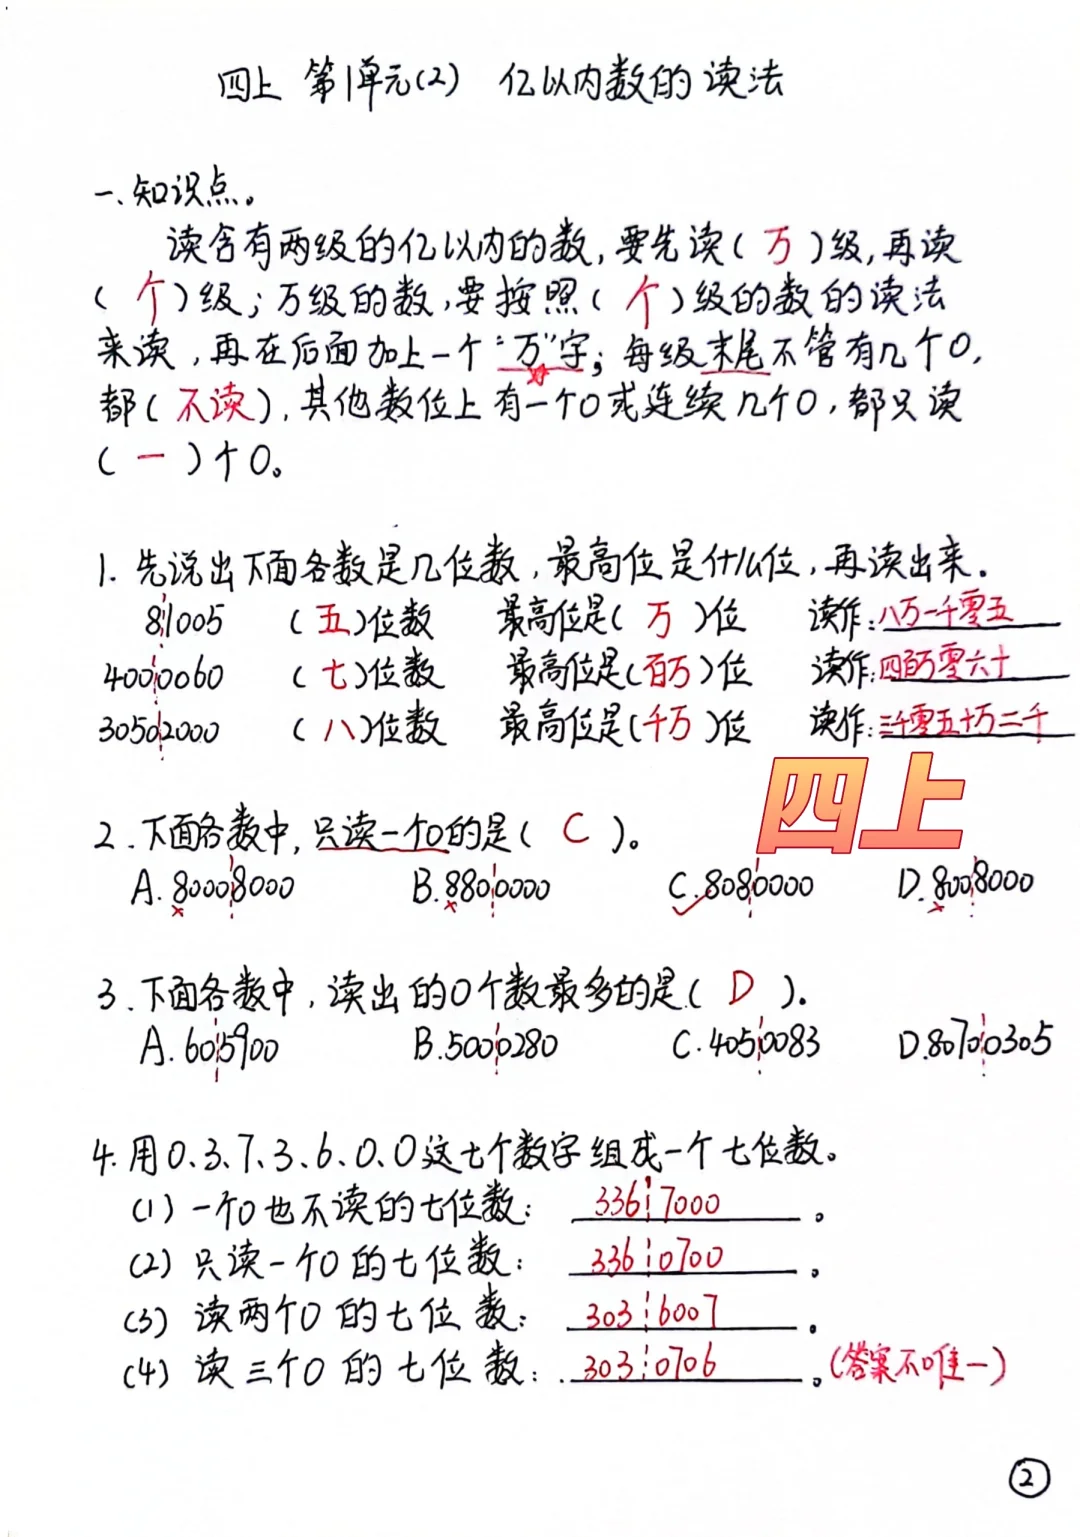 四上 第1单元(2) 亿以内数的读法
一、知识点。
读含有两级的亿以内的数,要先读(万)级,再读
(个)级;万级的数,要按照(个)级的数的读法
来读,再在后面加上一个“万”字;每级末尾不管有几个0,
都(不读),其他数位上有一个0或连续几个0,都只读
(一)个0。
1. 先说出下面各数是几位数,最高位是什么位,再读出来.
81005 (五)位数 最高位是(万)位 读作:八万一千零五
4000060 (七)位数 最高位是(百万)位 读作:四百万零六十
30502000 (八)位数 最高位是(千万)位 读作:三千零五十万二千
四上
2. 下面各数中,只读一个0的是( C )。
A. 80008000 B. 8800000 C. 8080000 D. 8008000
3. 下面各数中,读出的0个数最多的是( D ).
A. 605900 B. 5000280 C. 4050083 D. 80700305
4. 用0、3、7、3、6、0、0这七个数字组成一个七位数。
(1) 一个0也不读的七位数: 3367000 。
(2) 只读一个0的七位数: 3360700 。
(3) 读两个0的七位数: 3036007 。
(4) 读三个0的七位数: 3030706 。(答案不唯一)
2